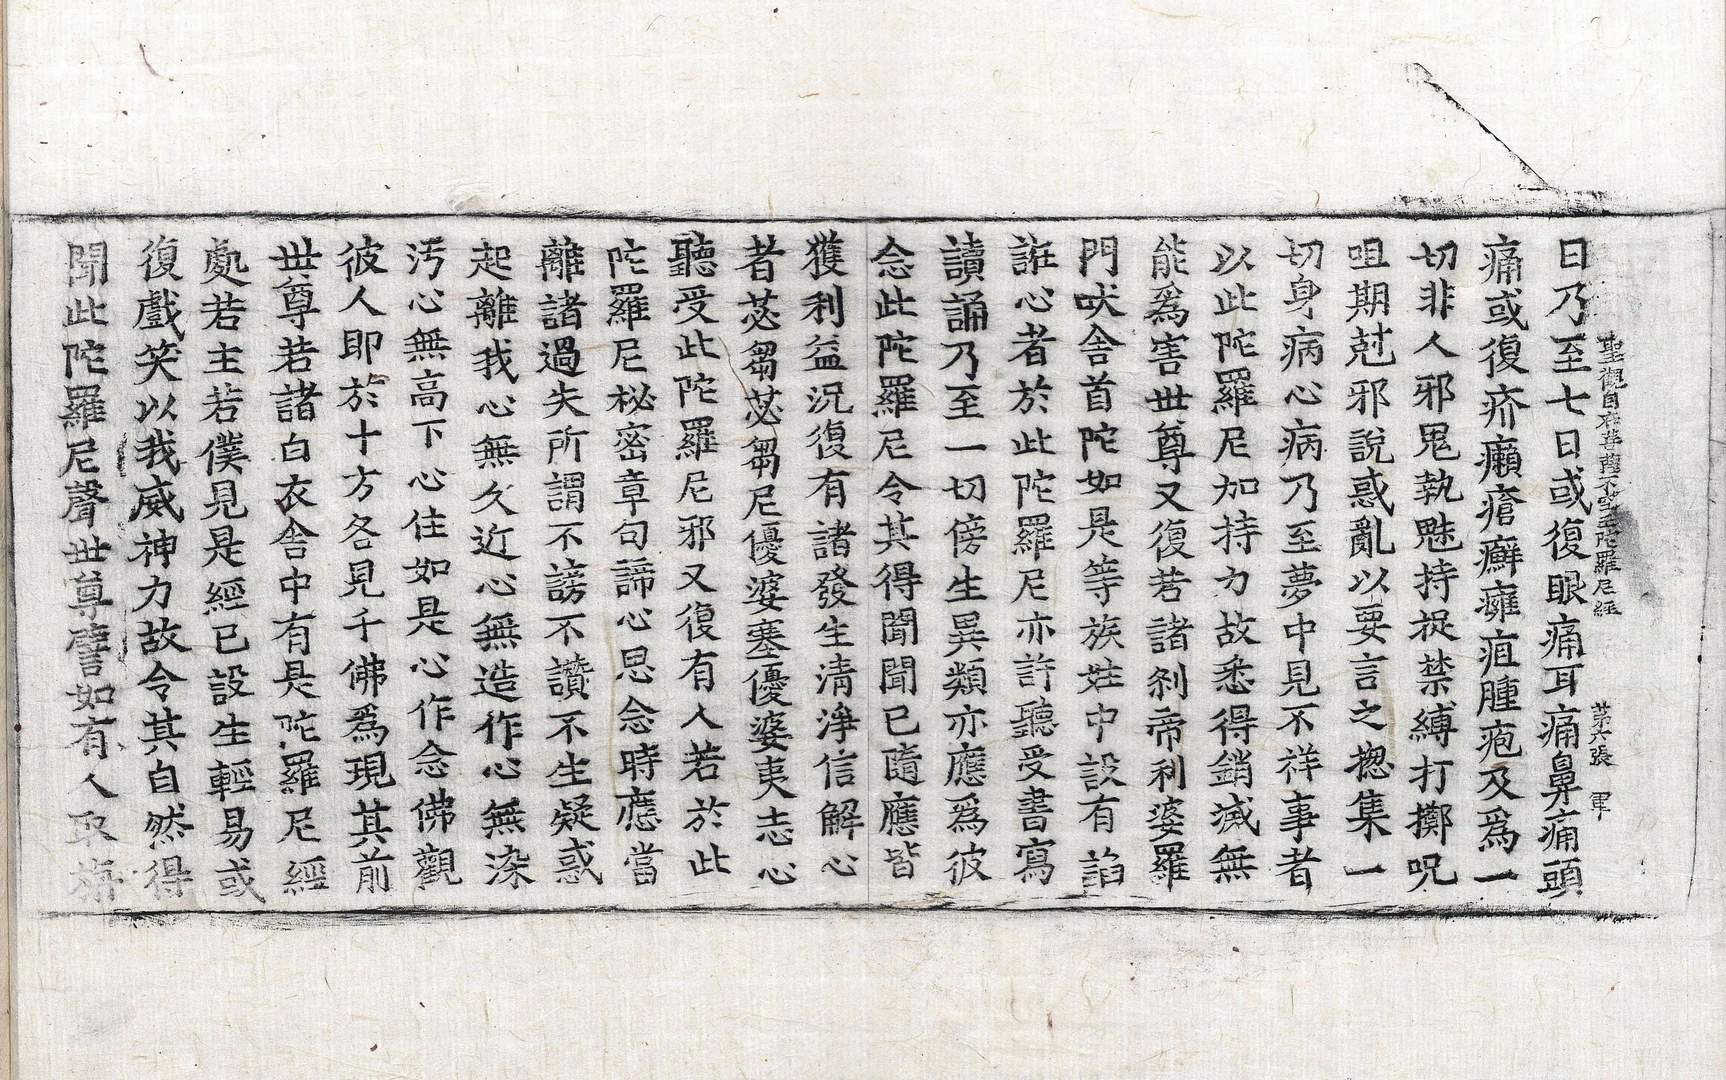 聖觀自在菩薩不空王陀羅尼經 第六張 軍
日乃至七日或復眼痛耳痛鼻痛頭
痛或復疥癩瘡癬癰疽腫疱及爲一
切非人邪鬼執魅持捉禁縛打擲呪
咀期尅邪說惑亂以要言之揔集一
切身病心病乃至夢中見不祥事者
以此陀羅尼加持力故悉得銷滅無
能爲害世尊又復若諸刹帝利婆羅
門吠舍首陀如是等族姓中設有諂
誑心者於此陀羅尼亦許聽受書寫
讀誦乃至一切傍生異類亦應爲彼
念此陀羅尼令其得聞聞已隨應皆
獲利益況復有諸發生清淨信解心
者苾芻苾芻尼優婆塞優婆夷志心
聽受此陀羅尼邪又復有人若於此
陀羅尼秘密章句諦心思念時應當
離諸過失所謂不謗不讚不生疑惑
起離我心無久近心無造作心無染
汚心無高下心住如是心作念佛觀
彼人即於十方各見千佛爲現其前
世尊若諸白衣舍中有是陀羅尼經
處若主若僕見是經已設生輕易或
復戲笑以我威神力故令其自然得
聞此陀羅尼聲世尊譬如有人取栴